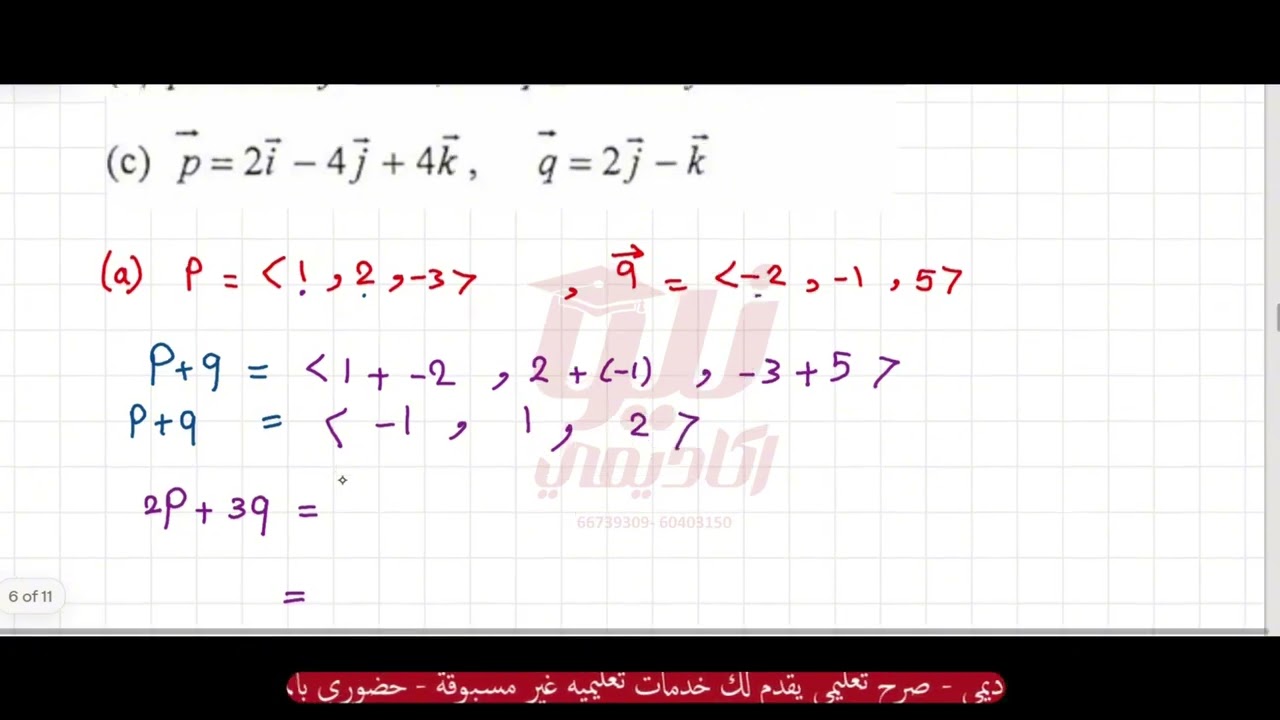 (c) p = 2i − 4j + 4k , q = 2j − k
(a) P = < 1 , 2 , -3 > , q = < -2 , -1 , 5 >
P+q = < 1 + -2 , 2 + (-1) , -3 + 5 >
P+q = < -1 , 1 , 2 >
2P + 3q =
=
اكاديمي
66739309- 60403150
6 of 11
ديمي - صرح تعليمي يقدم لك خدمات تعليميه غير مسبوقة - حضوري با